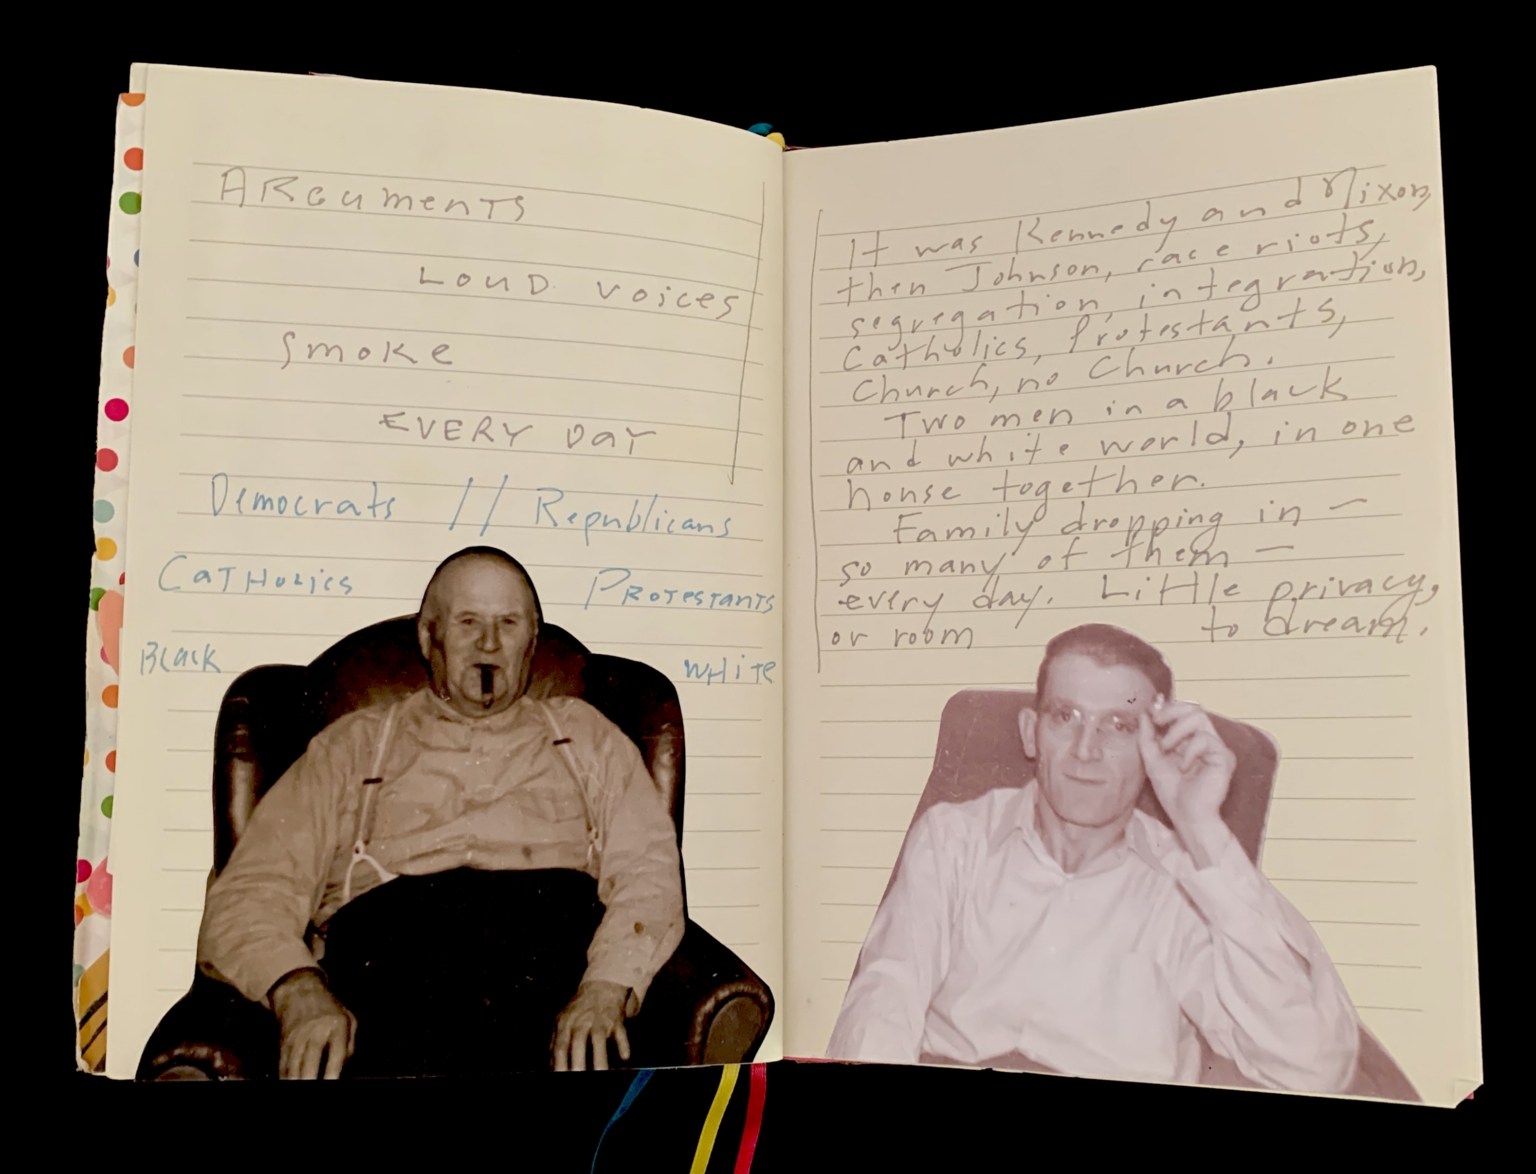 ARGUMENTS
LOUD VOICES
SMOKE
EVERY DAY
Democrats // Republicans
CATHOLICS PROTESTANTS
BLACK WHITE
It was Kennedy and Nixon,
then Johnson, race riots,
segregation, integration,
Catholics, Protestants,
Church, no Church.
Two men in a black
and white world, in one
house together.
Family dropping in —
so many of them —
every day. Little privacy,
or room to dream.